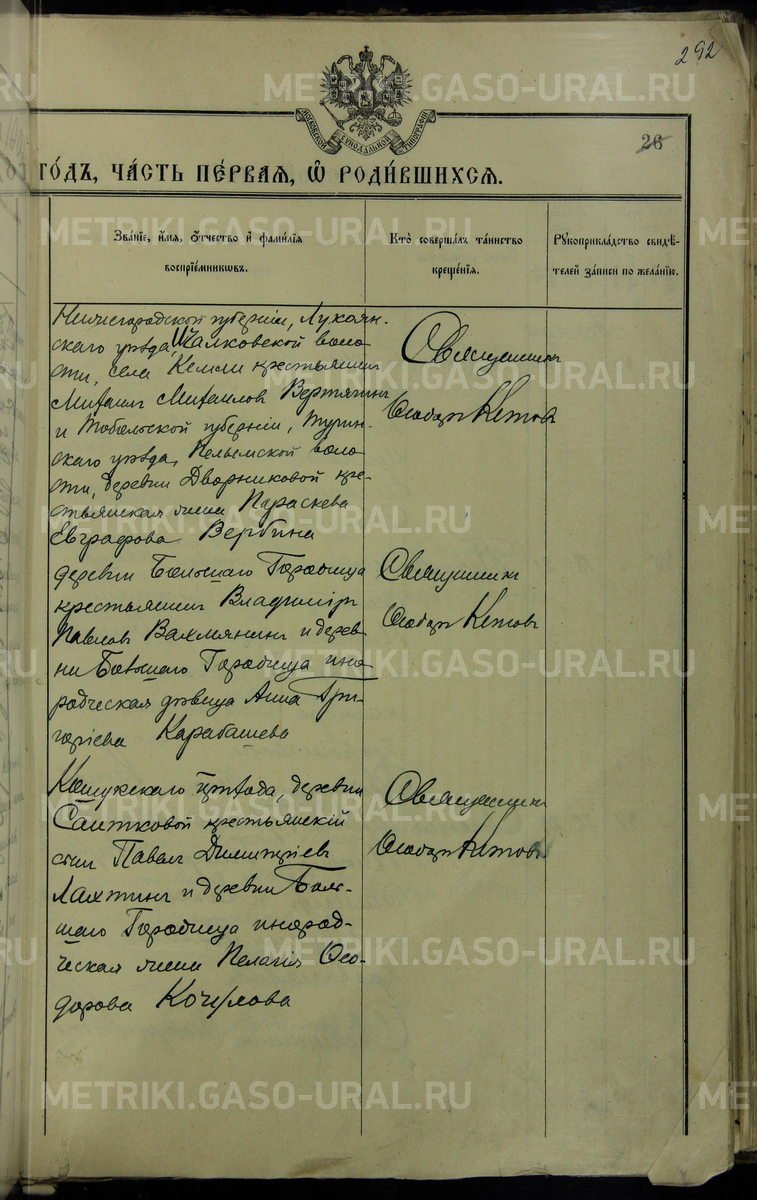 292
26
МОСКОВСКОЙ СѴНОДАЛЬНОЙ ТИПОГРАФІИ
ГО́ДЪ, ЧА́СТЬ ПЕ́РВАЯ, Ѿ РОДИ́ВШИХСЯ.
Зва́ніе, и́мя, ѻ҆́тчество и҆ фами́лія
воспріе́мникѡвъ.
Кто̀ соверша́лъ та́инство
креще́нія.
Рꙋкоприкла́дство свидѣ́-
телей за́писи по жела́нію.
Нижегородской губерніи, Лукоян-
скаго уѣзда, Шалковской воло-
сти, села Кемли крестьянин
Михаилъ Михаиловъ Вертянин
и Тобольской губерніи, Турин-
скаго уѣзда, Пелымской воло-
сти, деревни Дворниковой кре-
стьянская жена Параскева
Евграфова Вербина
Священникъ
Ѳеодоръ Кетовъ
деревни Большаго Городища
крестьянинъ Владиміръ
Павловъ Вахмянинъ и дерев-
ни Большаго Городища ино-
родческая дѣвица Анна Гри-
горіева Карабашева
Священникъ
Ѳеодоръ Кетовъ
уѣзда, деревни
Саитковой крестьянскій
сынъ Павелъ Димитріевъ
Лахтинъ и деревни Боль-
шаго Городища инород-
ческая жена Пелагія Ѳео-
дорова Кочулова
Священникъ
Ѳеодоръ Кетовъ
METRIKI.GASO-URAL.RU